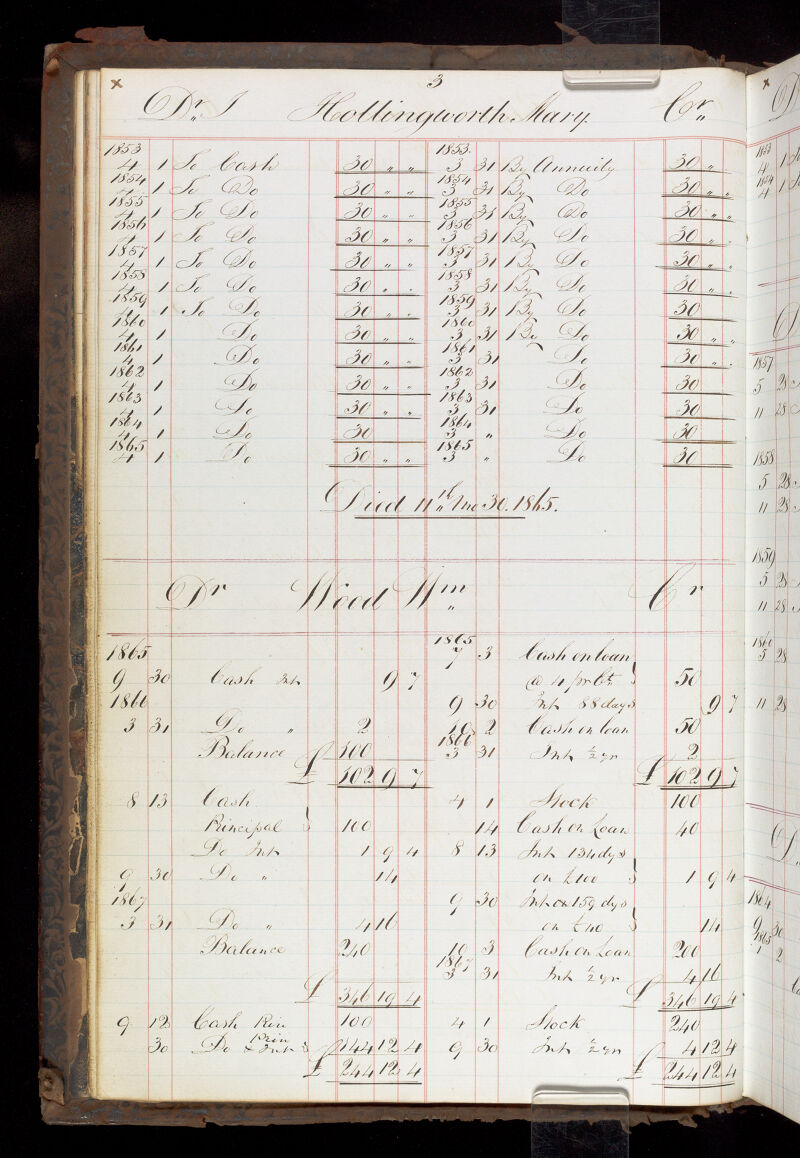 3
Dr. J Hollingworth Mary Cr.
1853 1853
4 1 To Cash 30 " " 3 31 By Annuity 30 "
1854 1854
4 1 To Do 30 " " 3 31 By Do 30 " "
1855 1855
4 1 To Do 30 " " 3 31 By Do 30 " "
1856 1856
4 1 To Do 30 " " 3 31 By Do 30 " "
1857 1857
4 1 To Do 30 " " 3 31 By Do 30 " "
1858 1858
4 1 To Do 30 " " 3 31 By Do 30 " "
1859 1859
4 1 To Do 30 " " 3 31 By Do 30
1860 1860
4 1 Do 30 " " 3 31 By Do 30 " "
1861 1861
4 1 Do 30 " " 3 31 Do 30 " "
1862 1862
4 1 Do 30 " " 3 31 Do 30
1863 1863
4 1 Do 30 " " 3 31 Do 30
1864 1864
4 1 Do 30 3 " Do 30
1865 1865
4 1 Do 30 " " 3 " Do 30
Died 11th Mo 30. 1865.
Dr Wood Wm Cr
1865 1865
7 3 Cash on loan
9 30 Cash Int 9 7 @ 4 pr Ct 50
1866 9 30 Int 88 days 9 7
3 31 Do " 2 10 2 Cash on loan 50
1866
Balance 100 3 31 Int ½ yr 2
£ 102 9 7 £ 102 9 7
8 13 Cash 4 1 Stock 100
Principal 100 14 Cash on Loan 40
Do Int 1 9 4 8 13 Int 134 dys
9 30 Do " 14 on £100 1 9 4
1867 9 30 Int on 159 dys
3 31 Do " 4 16 on £40 14
Balance 240 10 3 Cash on Loan 200
1867
3 31 Int ½ yr 4 16
£ 346 19 4 £ 346 19 4
9 12 Cash Prin 100 4 1 Stock 240
30 Do Prin & Int 144 12 4 9 30 Int ½ yr 4 12 4
£ 244 12 4 £ 244 12 4
1857
5 28
11 28
1858
5 28
11 28
1859
5 28
11 28
1860
5 28
11 28
1864
9 30
1865
1 2